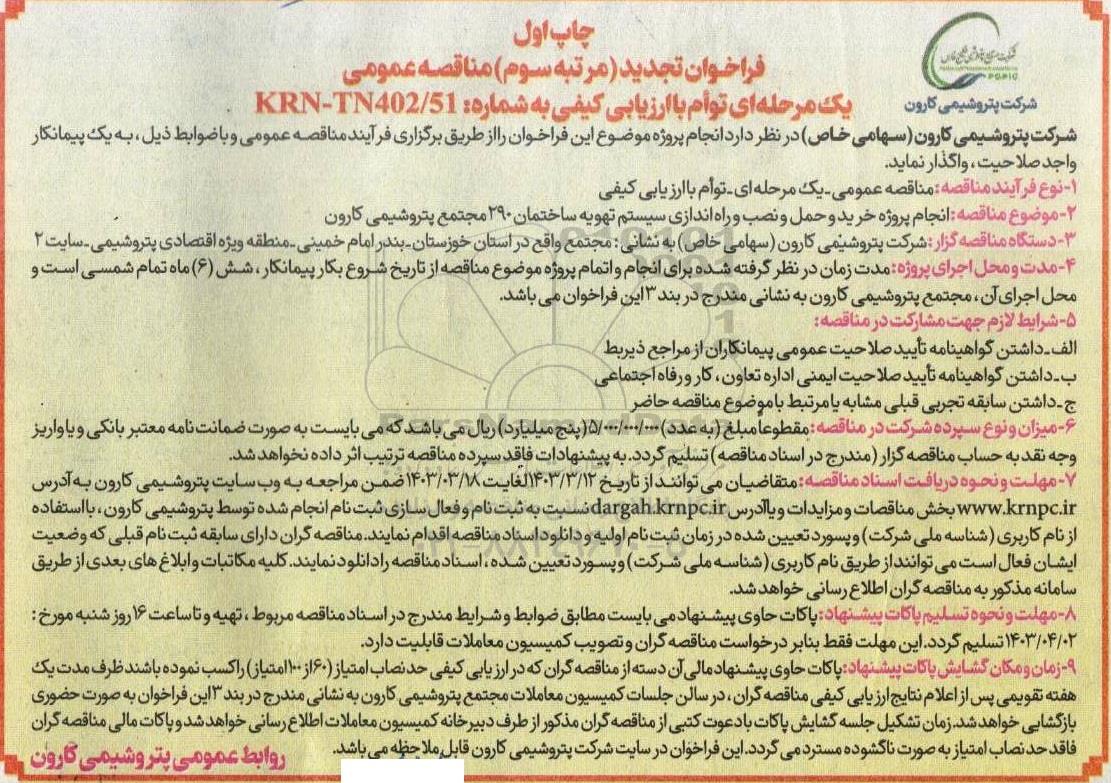 چاپ اول
فراخوان تجدید (مرتبه سوم) مناقصه عمومی
یک مرحله‌ای توأم با ارزیابی کیفی به شماره: KRN-TN402/51
PGPIC
شرکت پتروشیمی کارون
شرکت پتروشیمی کارون (سهامی خاص) در نظر دارد انجام پروژه موضوع این فراخوان را از طریق برگزاری فرآیند مناقصه عمومی و با ضوابط ذیل، به یک پیمانکار
واجد صلاحیت، واگذار نماید.
۱-نوع فرآیند مناقصه: مناقصه عمومی-یک مرحله‌ای-توأم با ارزیابی کیفی
۲-موضوع مناقصه: انجام پروژه خرید و حمل و نصب و راه اندازی سیستم تهویه ساختمان ۲۹۰ مجتمع پتروشیمی کارون
۳-دستگاه مناقصه گزار: شرکت پتروشیمی کارون (سهامی خاص) به نشانی: مجتمع واقع در استان خوزستان-بندر امام خمینی-منطقه ویژه اقتصادی پتروشیمی-سایت ۲
۴-مدت و محل اجرای پروژه: مدت زمان در نظر گرفته شده برای انجام و اتمام پروژه موضوع مناقصه از تاریخ شروع بکار پیمانکار، شش (۶) ماه تمام شمسی است و
محل اجرای آن، مجتمع پتروشیمی کارون به نشانی مندرج در بند ۳ این فراخوان می باشد.
۵-شرایط لازم جهت مشارکت در مناقصه:
الف-داشتن گواهینامه تأیید صلاحیت عمومی پیمانکاران از مراجع ذیربط
ب-داشتن گواهینامه تأیید صلاحیت ایمنی اداره تعاون، کار و رفاه اجتماعی
ج-داشتن سابقه تجربی قبلی مشابه یا مرتبط با موضوع مناقصه حاضر
۶-میزان و نوع سپرده شرکت در مناقصه: مقطوعاً مبلغ (به عدد) ۵/۰۰۰/۰۰۰/۰۰۰ (پنج میلیارد) ریال می باشد که می بایست به صورت ضمانت نامه معتبر بانکی و یا واریز
وجه نقد به حساب مناقصه گزار (مندرج در اسناد مناقصه) تسلیم گردد. به پیشنهادات فاقد سپرده مناقصه ترتیب اثر داده نخواهد شد.
۷-مهلت و نحوه دریافت اسناد مناقصه: متقاضیان می توانند از تاریخ ۱۴۰۳/۳/۱۲ لغایت ۱۴۰۳/۰۳/۱۸ ضمن مراجعه به وب سایت پتروشیمی کارون به آدرس
www.krnpc.ir بخش مناقصات و مزایدات و یا آدرس dargah.krnpc.ir نسبت به ثبت نام و فعال سازی ثبت نام انجام شده توسط پتروشیمی کارون، با استفاده
از نام کاربری (شناسه ملی شرکت) و پسورد تعیین شده در زمان ثبت نام اولیه و دانلود اسناد مناقصه اقدام نمایند. مناقصه گران دارای سابقه ثبت نام قبلی که وضعیت
ایشان فعال است می توانند از طریق نام کاربری (شناسه ملی شرکت) و پسورد تعیین شده، اسناد مناقصه را دانلود نمایند. کلیه مکاتبات و ابلاغ های بعدی از طریق
سامانه مذکور به مناقصه گران اطلاع رسانی خواهد شد.
۸-مهلت و نحوه تسلیم پاکات پیشنهاد: پاکات حاوی پیشنهاد می بایست مطابق ضوابط و شرایط مندرج در اسناد مناقصه مربوط، تهیه و تا ساعت ۱۶ روز شنبه مورخ:
۱۴۰۳/۰۴/۰۲ تسلیم گردد. این مهلت فقط بنابر درخواست مناقصه گران و تصویب کمیسیون معاملات قابلیت دارد.
۹-زمان و مکان گشایش پاکات پیشنهاد: پاکات حاوی پیشنهاد مالی آن دسته از مناقصه گران که در ارزیابی کیفی حد نصاب امتیاز (۶۰ از ۱۰۰ امتیاز) را کسب نموده باشند ظرف مدت یک
هفته تقویمی پس از اعلام نتایج ارزیابی کیفی مناقصه گران، در سالن جلسات کمیسیون معاملات مجتمع پتروشیمی کارون به نشانی مندرج در بند ۳ این فراخوان به صورت حضوری
بازگشایی خواهد شد. زمان تشکیل جلسه گشایش پاکات با دعوت کتبی از مناقصه گران مذکور از طرف دبیرخانه کمیسیون معاملات اطلاع رسانی خواهد شد و پاکات مالی مناقصه گران
فاقد حد نصاب امتیاز به صورت ناگشوده مسترد می گردد. این فراخوان در سایت شرکت پتروشیمی کارون قابل ملاحظه می باشد.
روابط عمومی پتروشیمی کارون